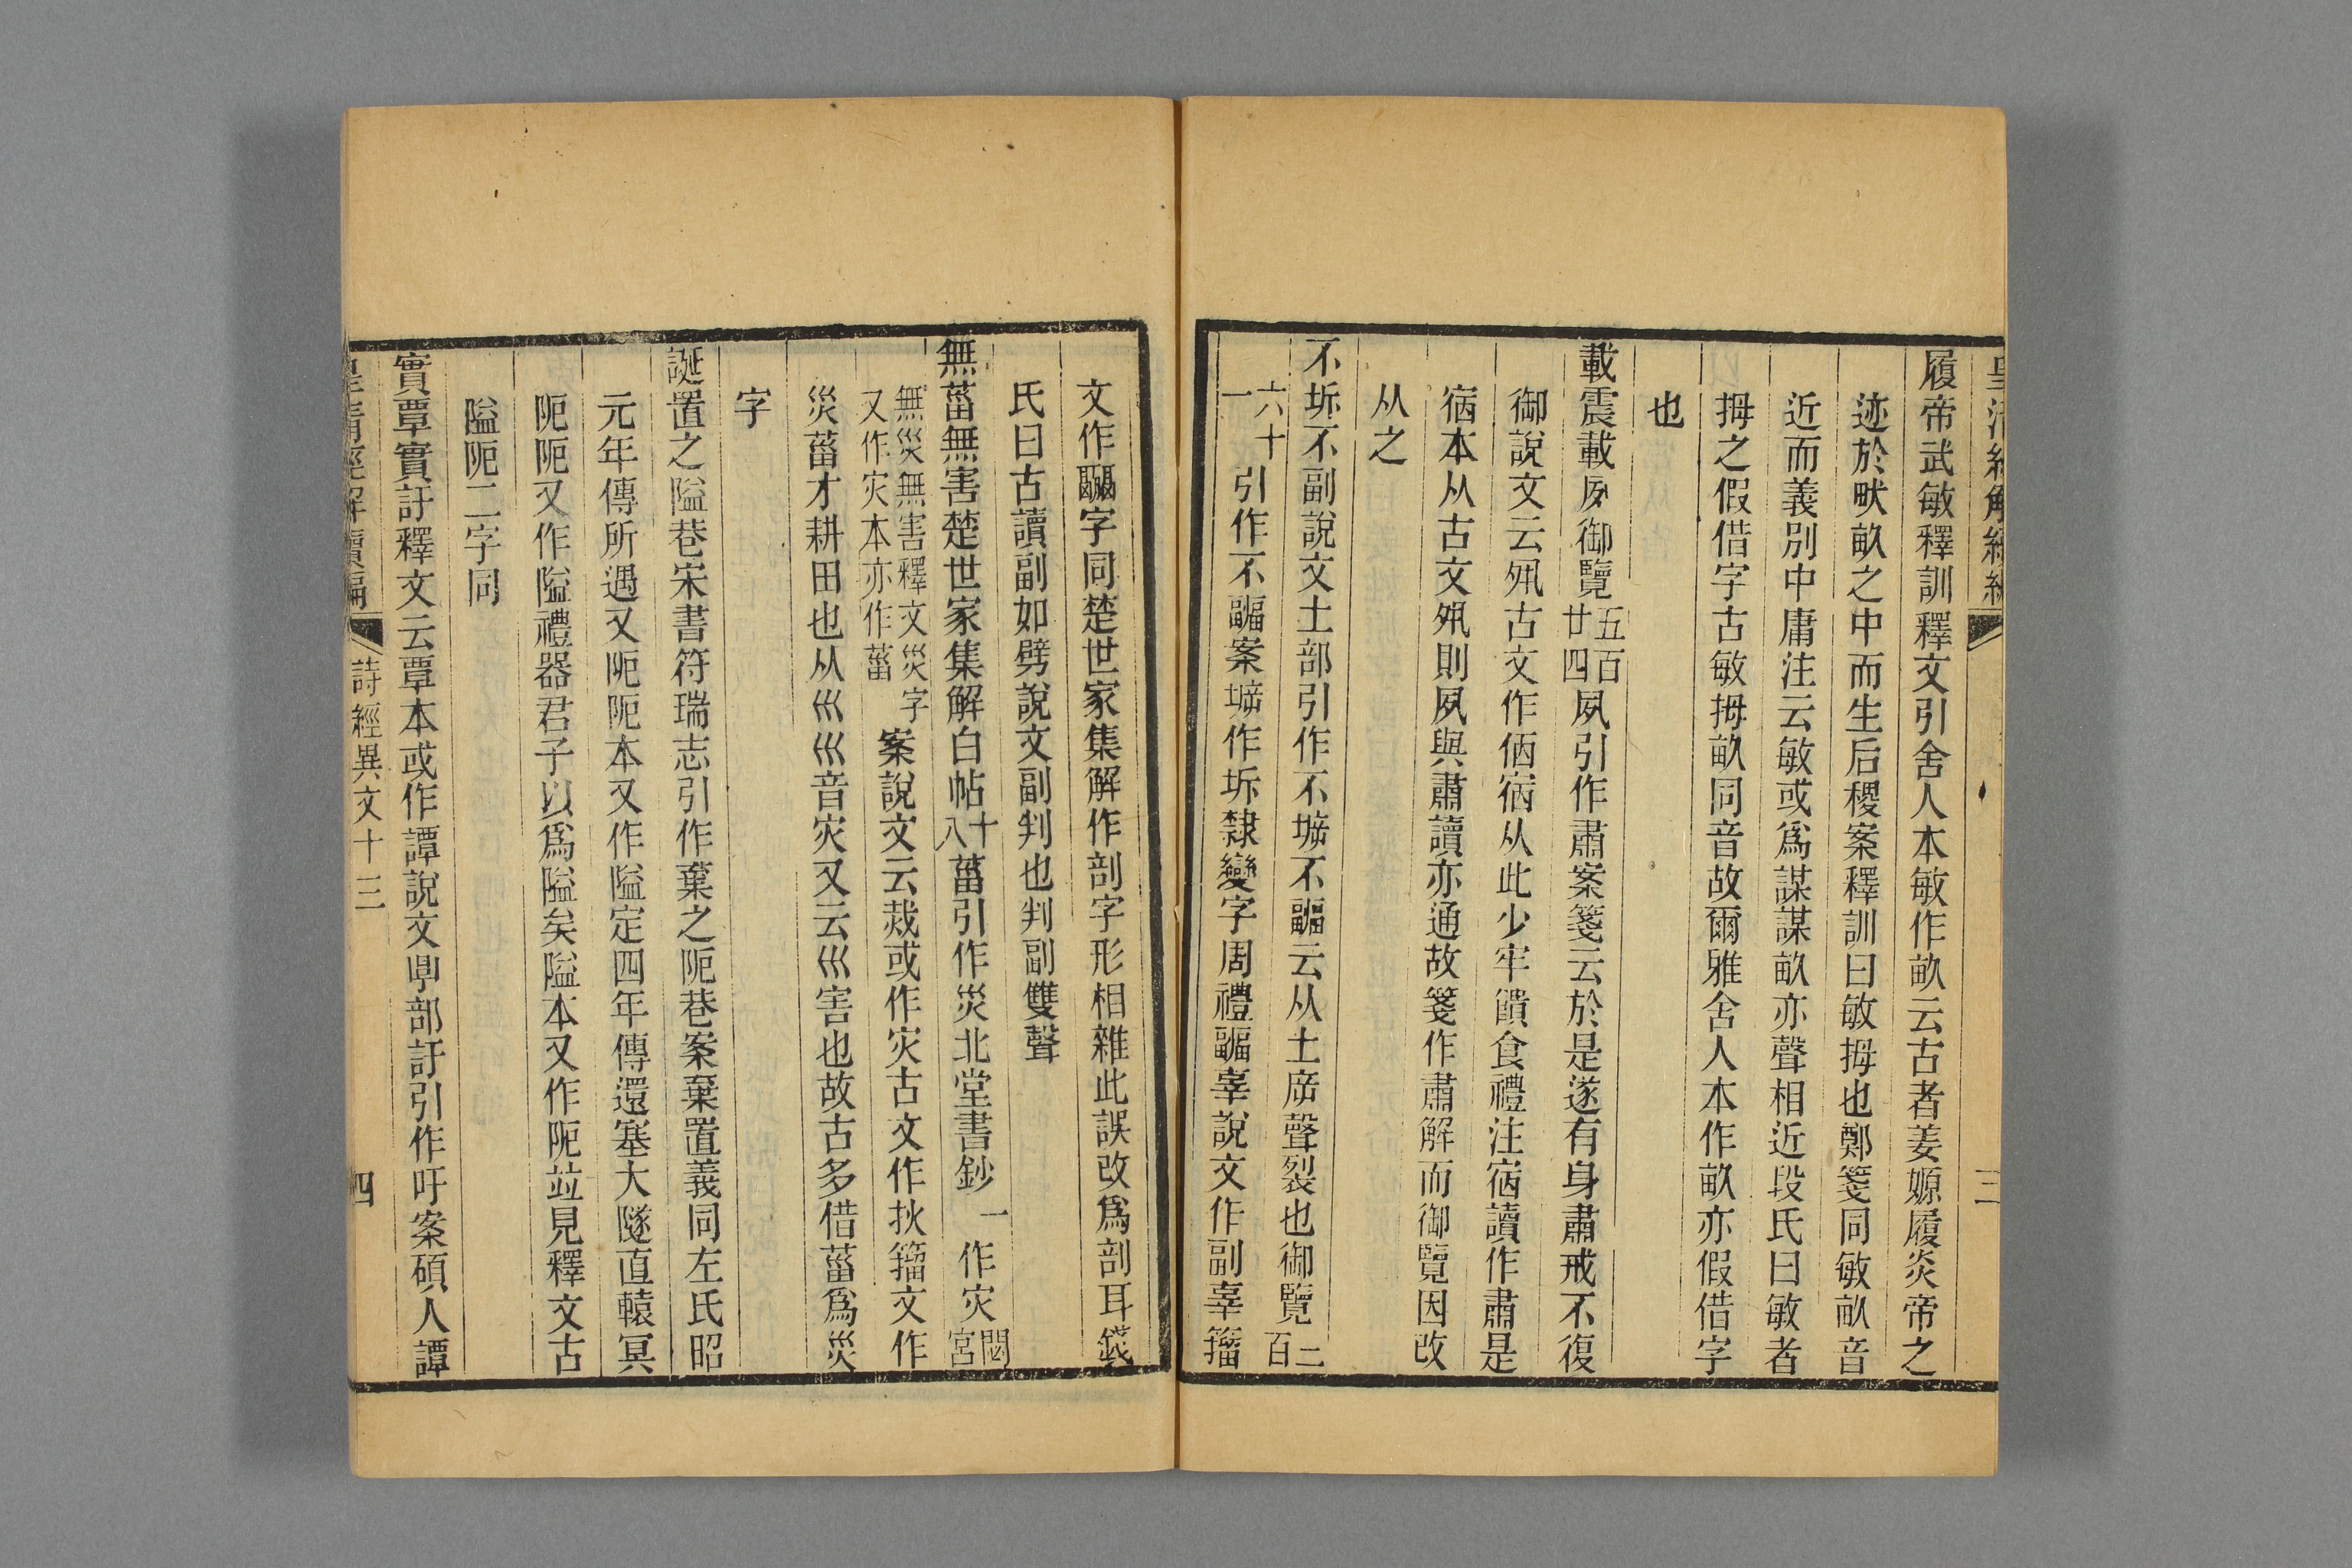 履帝武敏釋訓釋文引舍人本敏作畝云古者姜嫄履炎帝之
迹於畎畝之中而生后稷案釋訓曰敏拇也鄭箋同敏畝音
近而義別中庸注云敏或爲謀謀畝亦聲相近段氏曰敏者
拇之假借字古敏拇畝同音故爾雅舍人本作畝亦假借字
也
載震載夙御覽五百廿四夙引作肅案箋云於是遂有身肅戒不復
御說文云夙古文作㐁宿从此少牢饋食禮注宿讀作肅是
宿本从古文夙則夙與肅讀亦通故箋作肅解而御覽因改
从之
不坼不副說文土部引作不㙤不疈云从土㡿聲裂也御覽二百
六十一引作不疈案㙤作坼隸變字周禮疈辜說文作副辜籀
文作𠠦字同楚世家集解作剖字形相雜此誤改爲剖耳錢
氏曰古讀副如劈說文副判也判副雙聲
無菑無害楚世家集解白帖十八菑引作災北堂書鈔一作灾閟宮
無災無害釋文災字又作灾本亦作菑案說文云烖或作灾古文作㧴籀文作
災菑才耕田也从巛巛音灾又云巛害也故古多借菑爲災
字
誕置之隘巷宋書符瑞志引作棄之阨巷案棄置義同左氏昭
元年傳所遇又阨阨本又作隘定四年傳還塞大隧直轅冥
阨阨又作隘禮器君子以爲隘矣隘本又作阨竝見釋文古
隘阨二字同
實覃實訏釋文云覃本或作譚說文㫗部訏引作吁案碩人譚
皇清經解續編 詩經異文十三 四